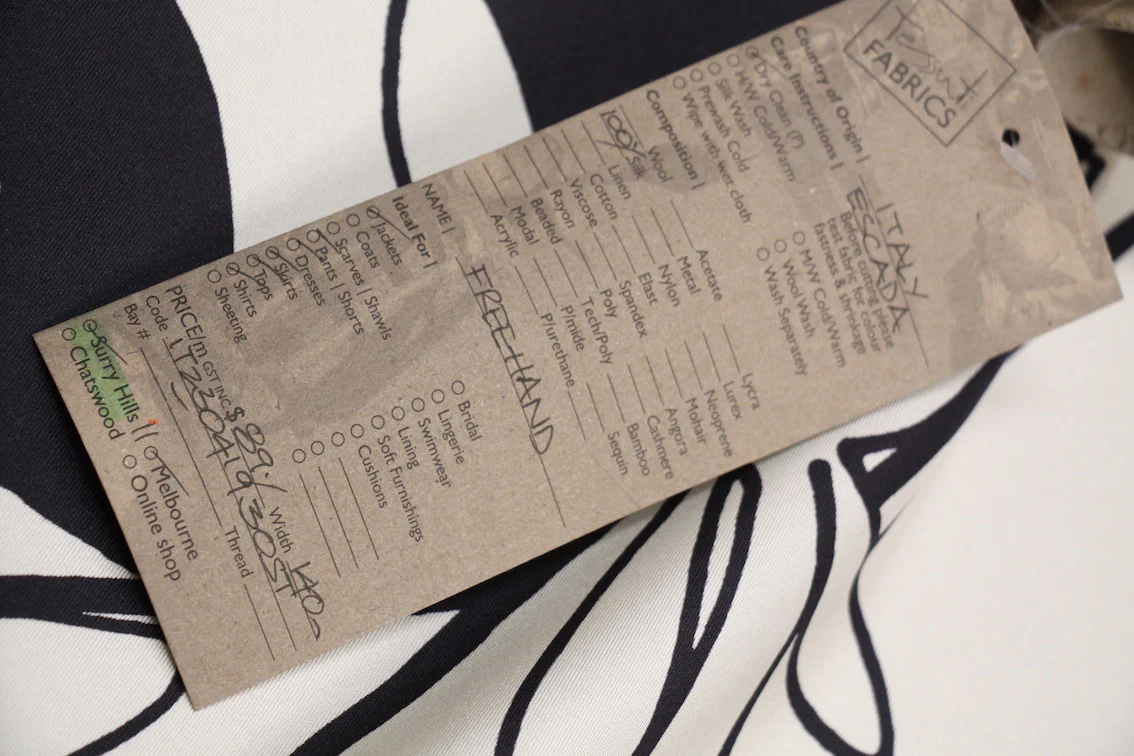 Tessuti
FABRICS
Country of Origin | ITALY
Care Instructions | ESCADA
Dry Clean (P)
H/W Cold/Warm
Silk Wash
Prewash Cold
Wipe with wet cloth
Before cutting please
test fabric for colour
fastness & shrinkage
M/W Cold/Warm
Wool Wash
Wash Separately
Composition |
Wool
100% Silk
Linen
Cotton
Viscose
Rayon
Beaded
Modal
Acrylic
Acetate
Metal
Nylon
Elast
Spandex
Poly
Tech/Poly
P/mide
P/urethane
Lycra
Lurex
Neoprene
Mohair
Angora
Cashmere
Bamboo
Sequin
NAME | FREEHAND
Ideal For |
Jackets
Coats
Scarves | Shawls
Pants | Shorts
Dresses
Skirts
Tops
Shirts
Sheeting
Bridal
Lingerie
Swimwear
Lining
Soft Furnishings
Cushions
PRICE/m GST INC $ 89.- Width 140
Code IT230419
Bay # Thread
Surry Hills || Melbourne
Chatswood Online shop